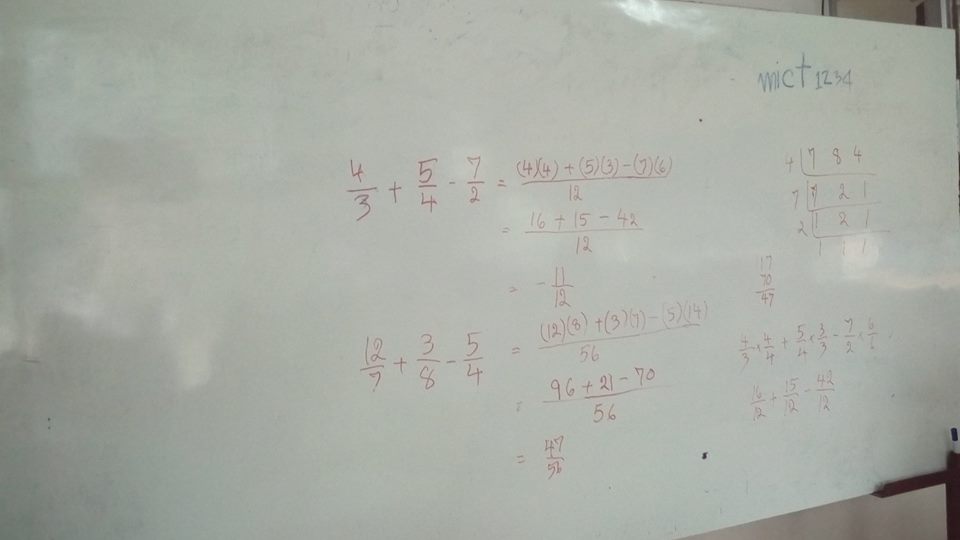 mict 1234
4/3 + 5/4 - 7/2 = ((4)(4) + (5)(3) - (7)(6))/12
= (16 + 15 - 42)/12
= - 11/12
12/7 + 3/8 - 5/4 = ((12)(8) + (3)(7) - (5)(14))/56
= (96 + 21 - 70)/56
= 47/56
4 | 7 8 4
7 | 7 2 1
2 | 1 2 1
1 1 1
17
70
47
4/3 × 4/4 + 5/4 × 3/3 - 7/2 × 6/6
16/12 + 15/12 - 42/12